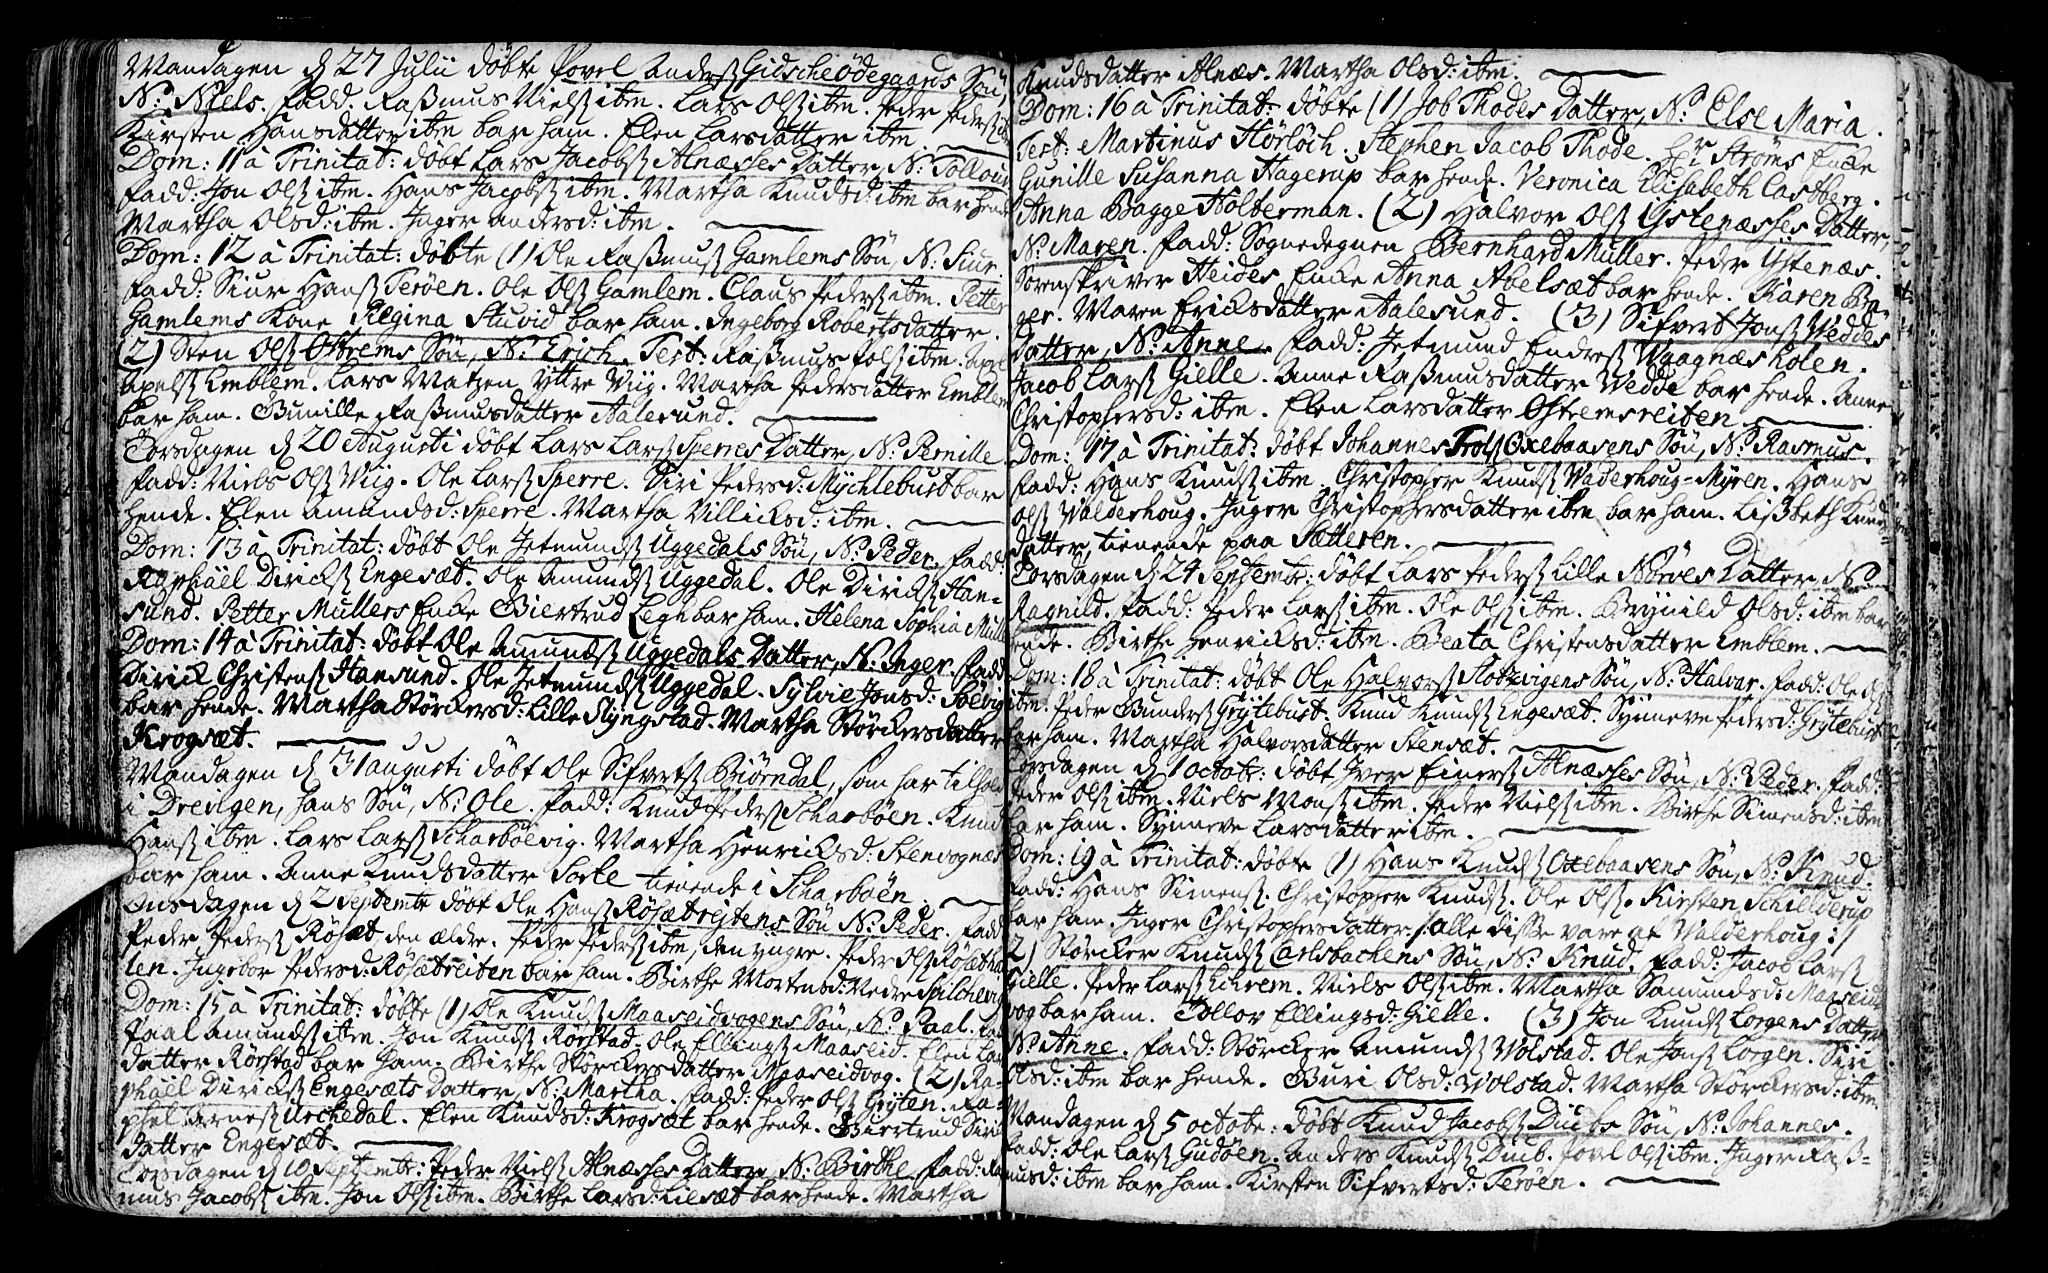 Mandagen d 27 Julii døbte Povel Anders Gidscheødegaards Søn,
N: Niels. Fadd. Rasmus Niels ibm. Lars Ols ibm. Peder Peders ibm
Kirsten Hansdatter ibm bar ham. Elen Larsdatter ibm.
Dom: 11 à Trinitat: døbt Lars Jacobs Alnæsses Datter, N: Tollow
Fadd: Jon Ols ibm. Hans Jacobs ibm. Martha Knudsd: ibm bar hende
Martha Olsd: ibm. Inger Andersd: ibm.
Dom: 12 à Trinitat: døbte (1) Ole Rasmus Gamlems Søn, N: Siur.
Fadd: Siur Hans Terøen. Ole Ols Gamlem. Claus Peders ibm. Petter
Gamlems Kone Regina Stuvid bar ham. Ingeborg Robertsdatter.
(2) Sten Ols Ostrems Søn, N: Erich. Test: Rasmus Pols ibm. Apel
Apels Emblem. Lars Matzen Yttre Viig. Martha Pedersdatter Emblem
bar ham. Gunille Rasmusdatter Aalesund.
Torsdagen d 20 Augusti døbt Lars Lars Sperres Datter, N: Pernille
Fadd: Niels Ols Viig. Ole Lars Sperre. Siri Pedersd: Mychlebust bar
hende. Elen Amundsd: Sperre. Martha Villicksd: ibm.
Dom: 13 à Trinitat: døbt Ole Jetmunds Uggedals Søn, N: Peder. Fadd:
Raphaël Diricks Engesæt. Ole Amunds Uggedal. Ole Diricks Han-
sund. Petter Mullers Enke Giertrud Legn bar ham. Helena Sophia Mulle
Dom: 14 à Trinitat: døbt Ole Amunds Uggedals Datter, N: Inger. Fadd:
Dirick Christens Hansund. Ole Jetmunds Uggedal. Sylvie Jonsd: Solvig
bar hende. Martha Størckersd: Lille Slyngstad. Martha Størckersdatter
Krogsæt.
Mandagen d 31 Augusti døbt Ole Sifverts Biørndal, som har tilhold
i Dreilgen, hans Søn, N: Ole. Fadd: Knud Peders Scharbøen. Knud
Hans ibm. Lars Lars Scharbøevig. Martha Henricksd: Stenvognæs
bar ham. Anne Knudsdatter Sorte tienende i Scharbøen.
Onsdagen d 2 Septembr døbt Ole Hans Røsætreitens Søn N: Peder. Fadd
Peder Peders Røsæt, den ældre. Peder Peders ibm, den yngre. Peder Ols Røsætrei
ten. Ingebor Pedersd: Røsætreiten bar ham. Birthe Mortensd: Nedre Spilchevig
Dom: 15 à Trinitat: døbte (1) Ole Knuds Maaseidvogens Søn, N: Paal. Fadd
Paal Amunds ibm. Jon Knuds Rørstad. Ole Ellings Maaseid. Elen Lars
datter Rørstad bar ham. Birthe Størckersdatter Maaseidvog. (2) Ra-
phaël Diricks Engesæts Datter, N: Martha. Fadd: Peder Ols Gryten. Ra-
phel Arnes Uerkedal. Elen Knudsd: Krogsæt bar hende. Giertrud Siri
datter Engesæt.
Torsdagen d 10 Septembr: Peder Niels Alnæsses Datter, N: Birthe. Fadd: Ras
mus Jacobs ibm. Jon Ols ibm. Birthe Larsd: Liesæt bar hende. Martha
Knudsdatter Alnæs. Martha Olsd: ibm.
Dom: 16 à Trinitat: døbte (1) Job Thodes Datter, N: Else Maria.
Test: Martinus Hørløch. Stephen Jacob Thode. Hr Strøms Enke
Gunille Susanna Hagerup bar hende. Veronica Elisabeth Castberg.
Anna Bagge Holterman. (2) Halvor Ols Ystenæsses Datter,
N: Maren. Fadd: Sognedegnen Bernhard Muller. Peder Ystenæs.
Sorenskriver Heides Enke Anna Abelsæt bar hende. Karen Ba-
ger. Maren Ericksdatter Aalesund. (3) Sifvert Jons Veddes
Datter, N: Anne. Fadd: Jetmund Endres Waagnæs holen.
Jacob Lars Gielle. Anne Rasmusdatter Vedde bar hende. Anne
Christophersd: ibm. Elen Larsdatter Ostremsreiten
Dom: 17 à Trinitat: døbt Johannes Trols Oxebaasens Søn, N: Rasmus.
Fadd: Hans Knuds ibm. Christopher Knuds Valderhoug-Myren. Hans
Ols Valderhoug. Inger Christophersdatter ibm bar ham. Lisbeth Knuds
datter, tienende paa Sætteren.
Torsdagen d 24 Septembr: døbt Lars Peders Lille Nørves Datter, N:
Ragnild. Fadd: Peder Lars ibm. Ole Ols ibm. Brynild Olsd: ibm bar
hende. Birthe Henricksd: ibm. Beata Christensdatter Emblem.
Dom: 18 à Trinitat: døbt Ole Halvors Flotevigens Søn, N: Halvar. Fadd: Ole Ols
ibm. Peder Gunders Grytebust. Knud Knuds Engesæt. Synneve Pedersd: Grytebust
bar ham. Martha Halvorsdatter Stensæt.
Torsdagen d 1 Octobr: døbt Iver Einers Alnæsses Søn, N: Peder. Fadd:
Peder Ols ibm. Niels Mons ibm. Peder Niels ibm. Birthe Simensd: ibm
bar ham. Synneve Larsdatter ibm.
Dom: 19 à Trinitat: døbte (1) Hans Knuds Oxebaasens Søn, N: Knud.
Fadd: Hans Simens. Christopher Knuds. Ole Ols. Kirsten Schielderup
bar ham. Inger Christophersdatter. /: Alle disse vare af Valderhoug :/
2) Størcker Knuds Carlsbachens Søn, N: Knud. Fadd: Jacob Lars
Gielle. Peder Lars Echrem. Niels Ols ibm. Martha Samundsd: Maaseid
vog bar ham. Tollov Ellingsd: Gielle. (3) Jon Knuds Lorgens Datter
N: Anne. Fadd: Størcker Amunds Volstad. Ole Jons Lorgen. Siri
Olsd: ibm bar hende. Guri Olsd: Wolstad. Martha Størckersd: ibm.
Mandagen d 5 Octobr: døbt Knud Jacobs Duebs Søn, N: Johannes.
Fadd: Ole Lars Gudøen. Anders Knuds Duib. Povl Ols ibm. Inger Ras-
musd: ibm bar ham. Kirsten Sifvertsd: Terøen.